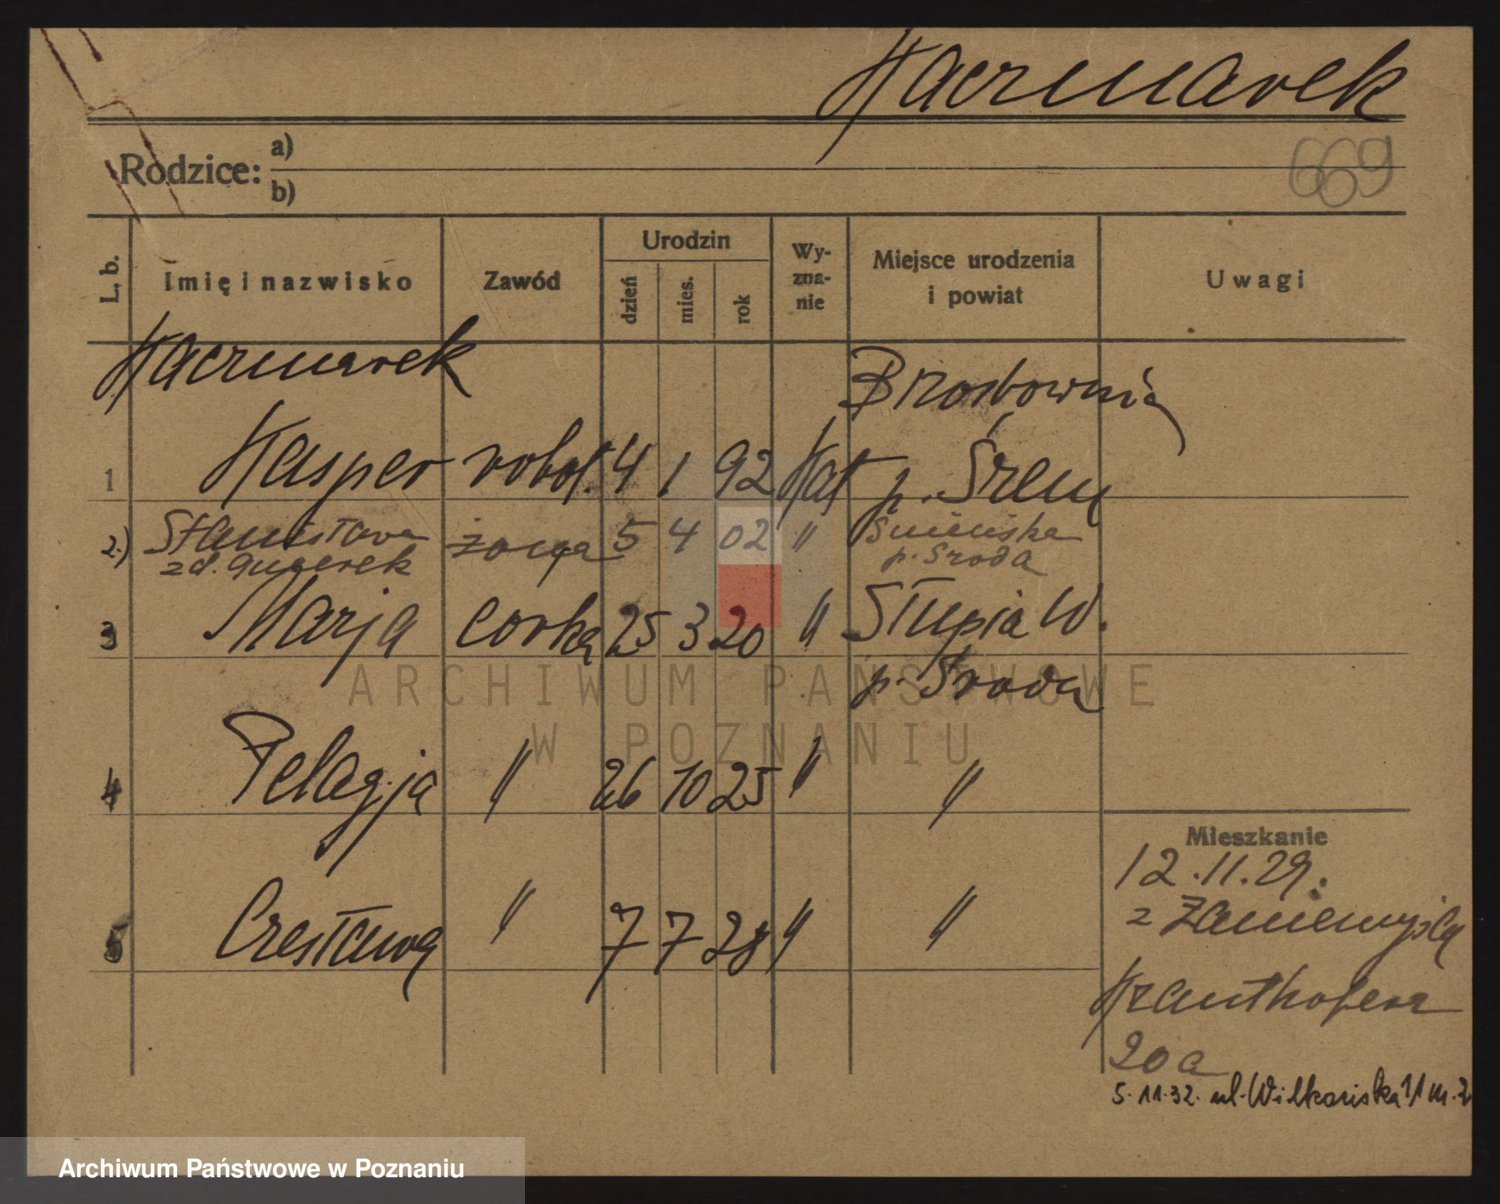 Kaczmarek
669
Rodzice: a)
b)
L. b.
Imię i nazwisko
Zawód
Urodzin
dzień
mies.
rok
Wy-
zna-
nie
Miejsce urodzenia
i powiat
Uwagi
Kaczmarek
Brostownia
1 Kasper robot. 4 1 92 Kat p. Śrem
2.) Stanisława żona 5 4 02 " Śnieciska
zd. p. Środa
3 Marja corka 25 3 20 " Słupia W.
p. Środa
4 Pelagja " 26 10 25 " "
5 Czesława " 7 7 28 " "
Mieszkanie
12.11.29.
z Zaniemyśla
Kranthofera
20a
5.11.32. ul. Wilkońska 11 m. 2
ARCHIWUM PAŃSTWOWE
W POZNANIU
Archiwum Państwowe w Poznaniu